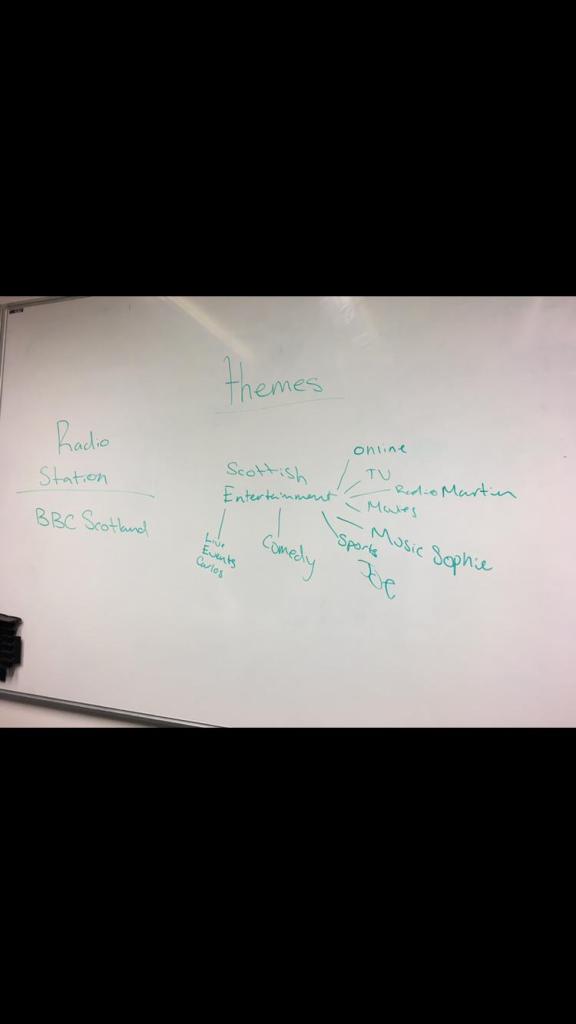 Themes
Radio
Station
BBC Scotland
Scottish
Entertainment
online
TV
Radio Martin
Music Sophie
Sports
Joe
Comedy
Live
Events
Carlos